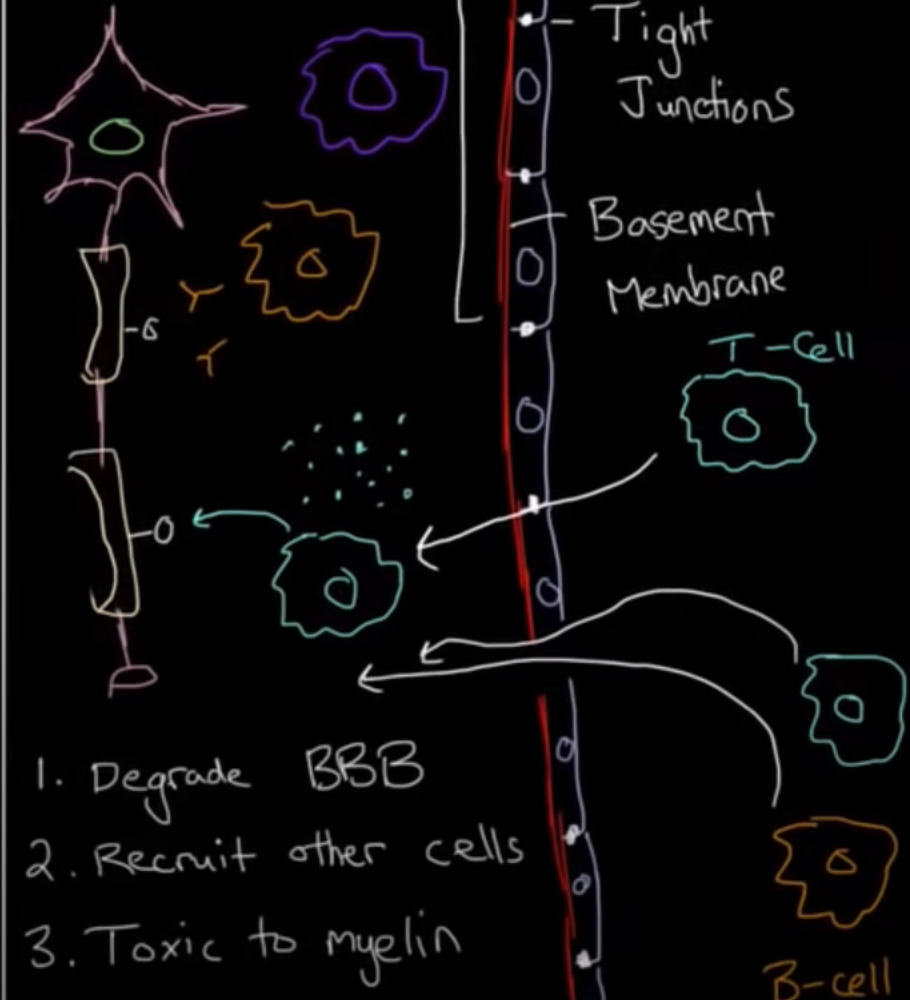 Tight
Junctions
Basement
Membrane
T-Cell
1. Degrade BBB
2. Recruit other cells
3. Toxic to myelin
B-cell